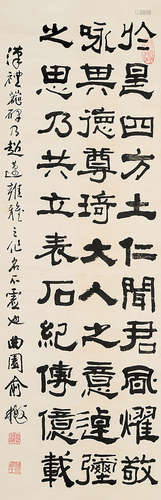 於是四方土仁聞君風燿敬
咏其德尊琦大人之意逴彌
之思乃共立表石紀傳億載
漢禮器碑乃超之作名不虛也曲園俞樾